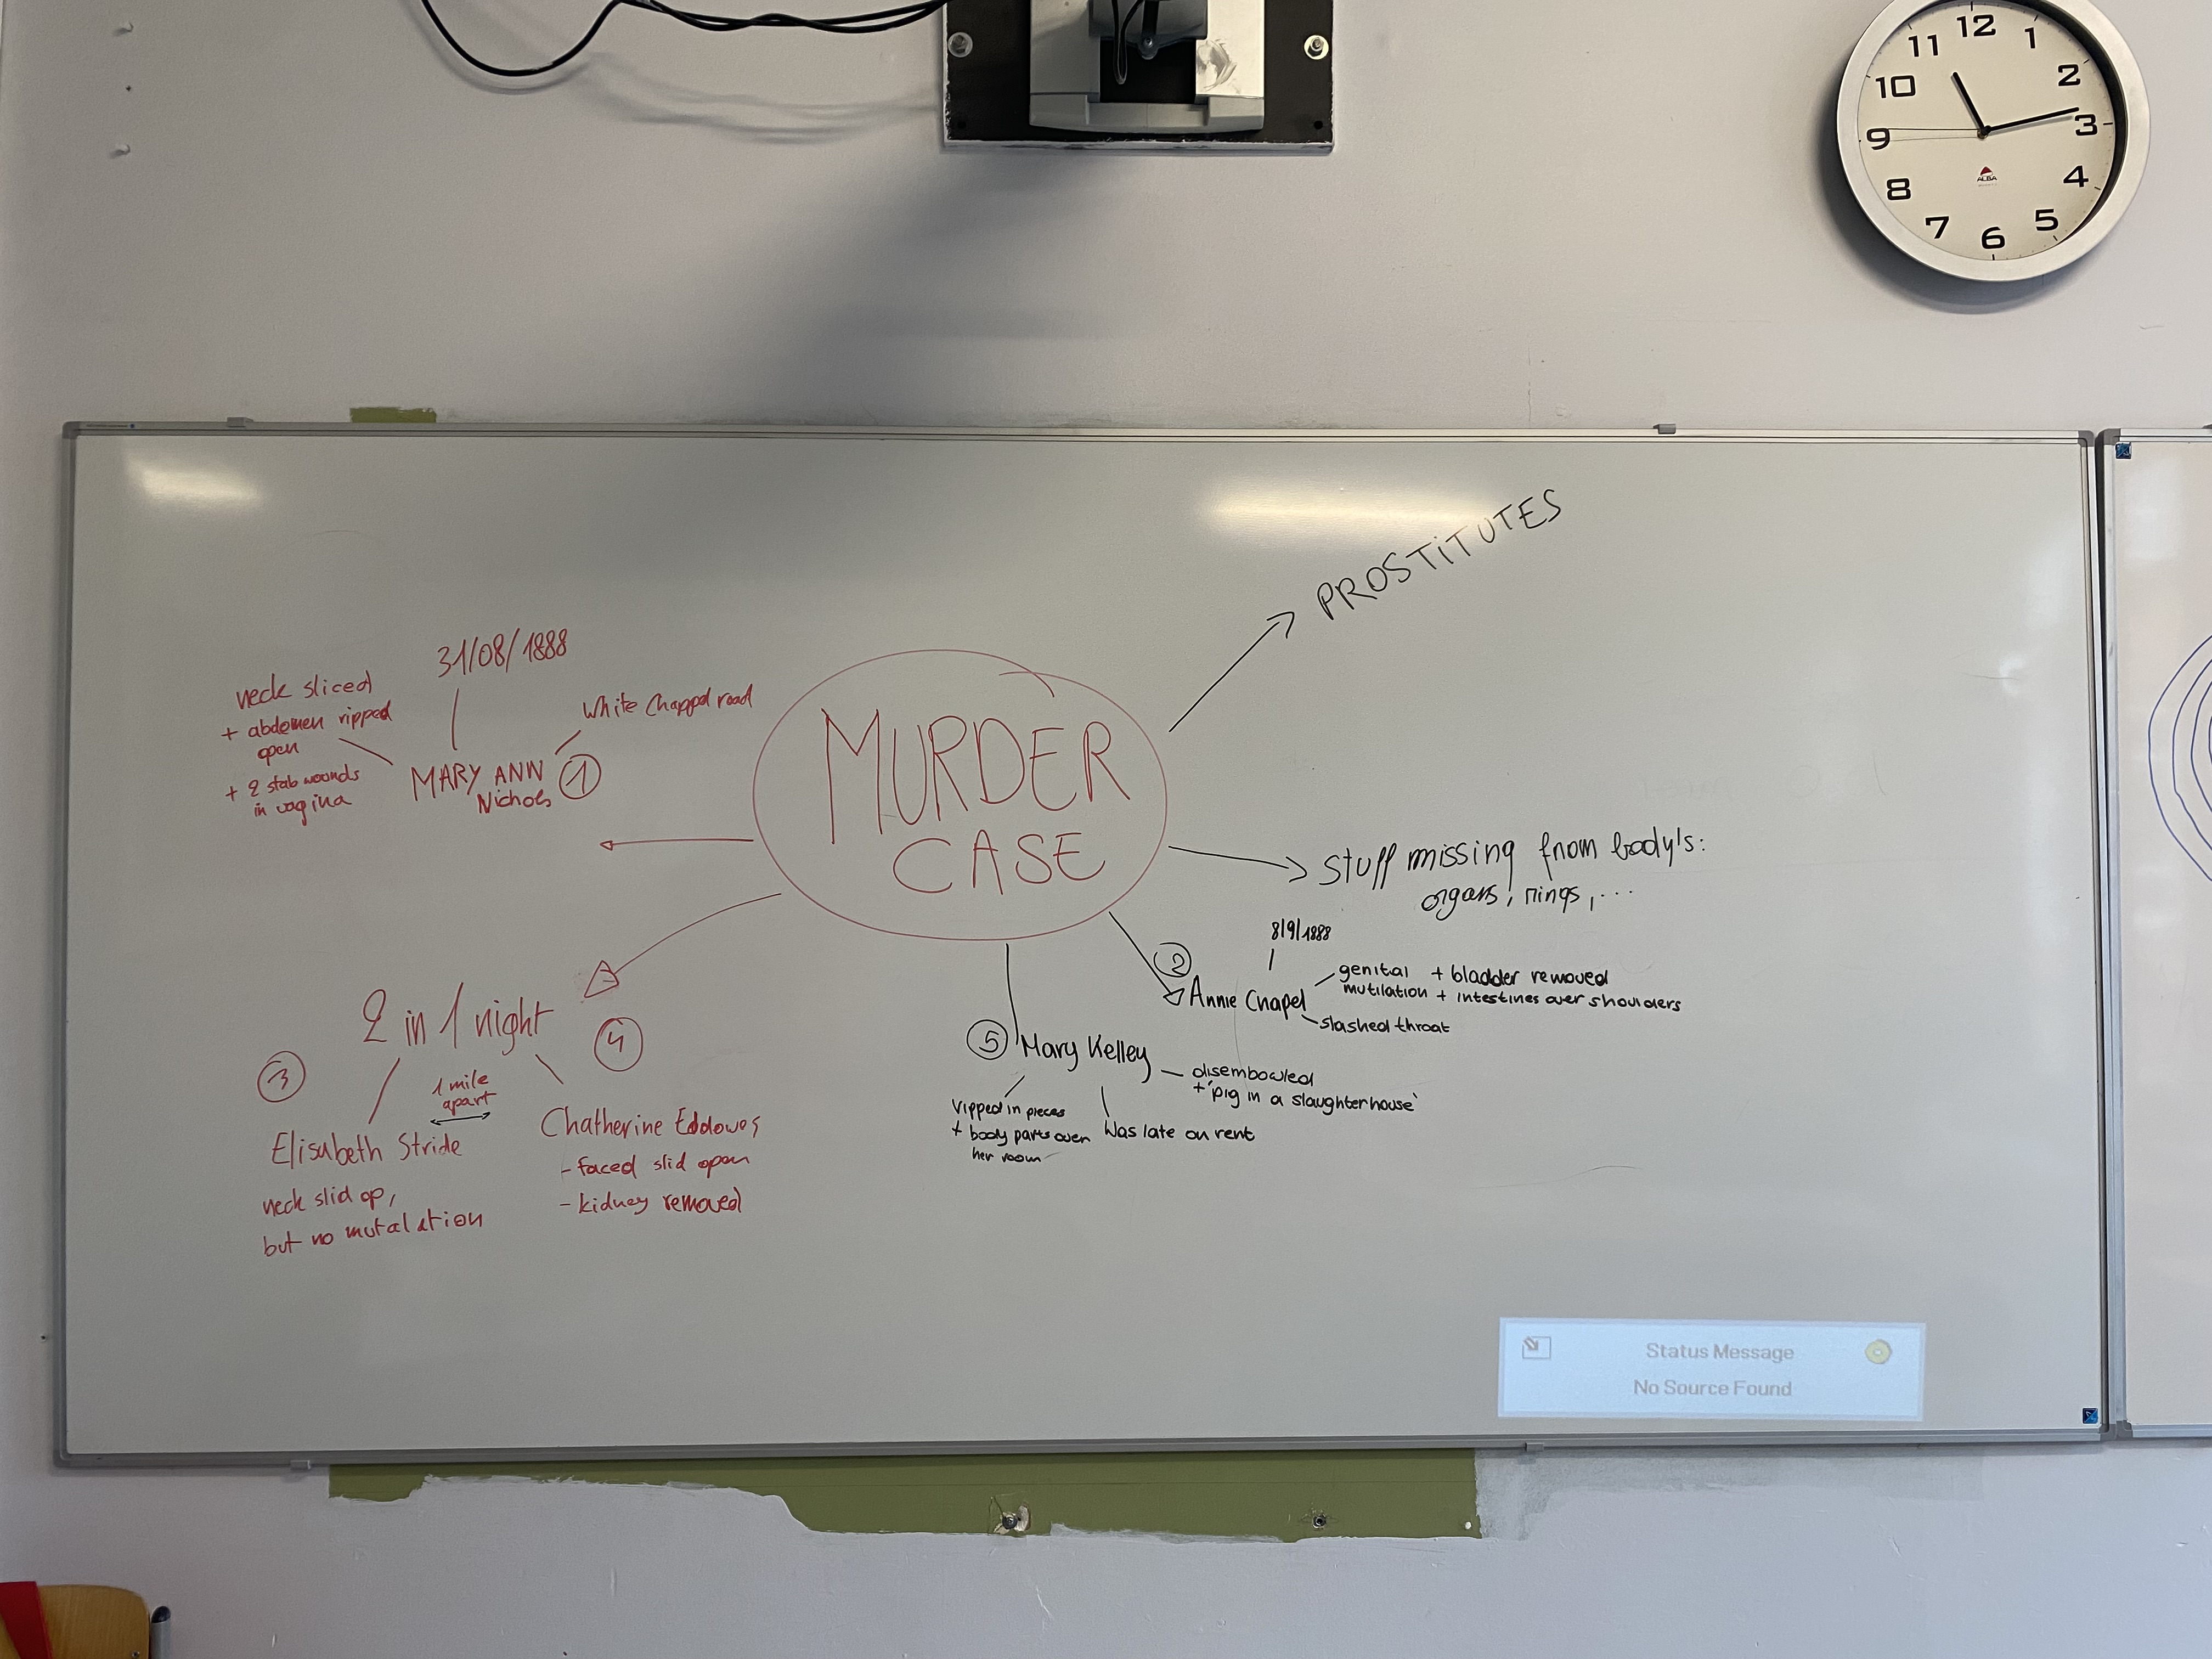 12
1
2
3
4
5
6
7
8
9
10
11
ALBA
PROSTiTUTES
31/08/1888
neck sliced
+ abdomen ripped
open
+ 2 stab wounds
in vagina
White Chappel road
MARY ANN
Nichols
1
MURDER
CASE
stuff missing from body's:
organs, rings, ...
8/9/1888
2
Annie Chapel
genital + bladder removed
mutilation + intestines over shoulders
slashed throat
2 in 1 night
3
4
1 mile
apart
Elisabeth Stride
neck slid op,
but no mutalation
Chatherine Eddowes
- faced slid open
- kidney removed
5
Mary Kelley
disembowled
+ 'pig in a slaughterhouse'
Vipped in pieces
+ body parts over
her room
Was late on rent
Status Message
No Source Found